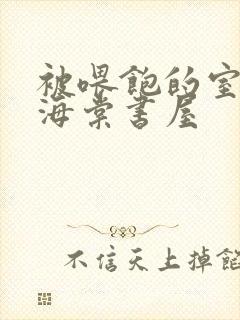 被喂饱的室
海棠书屋
不信天上掉馅